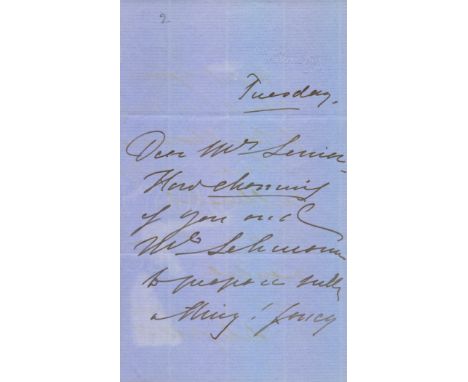 2
Tuesday.
Dear Mrs Senior
How charming
of you and
Mrs Lehmann
to propose such
a thing! fancy